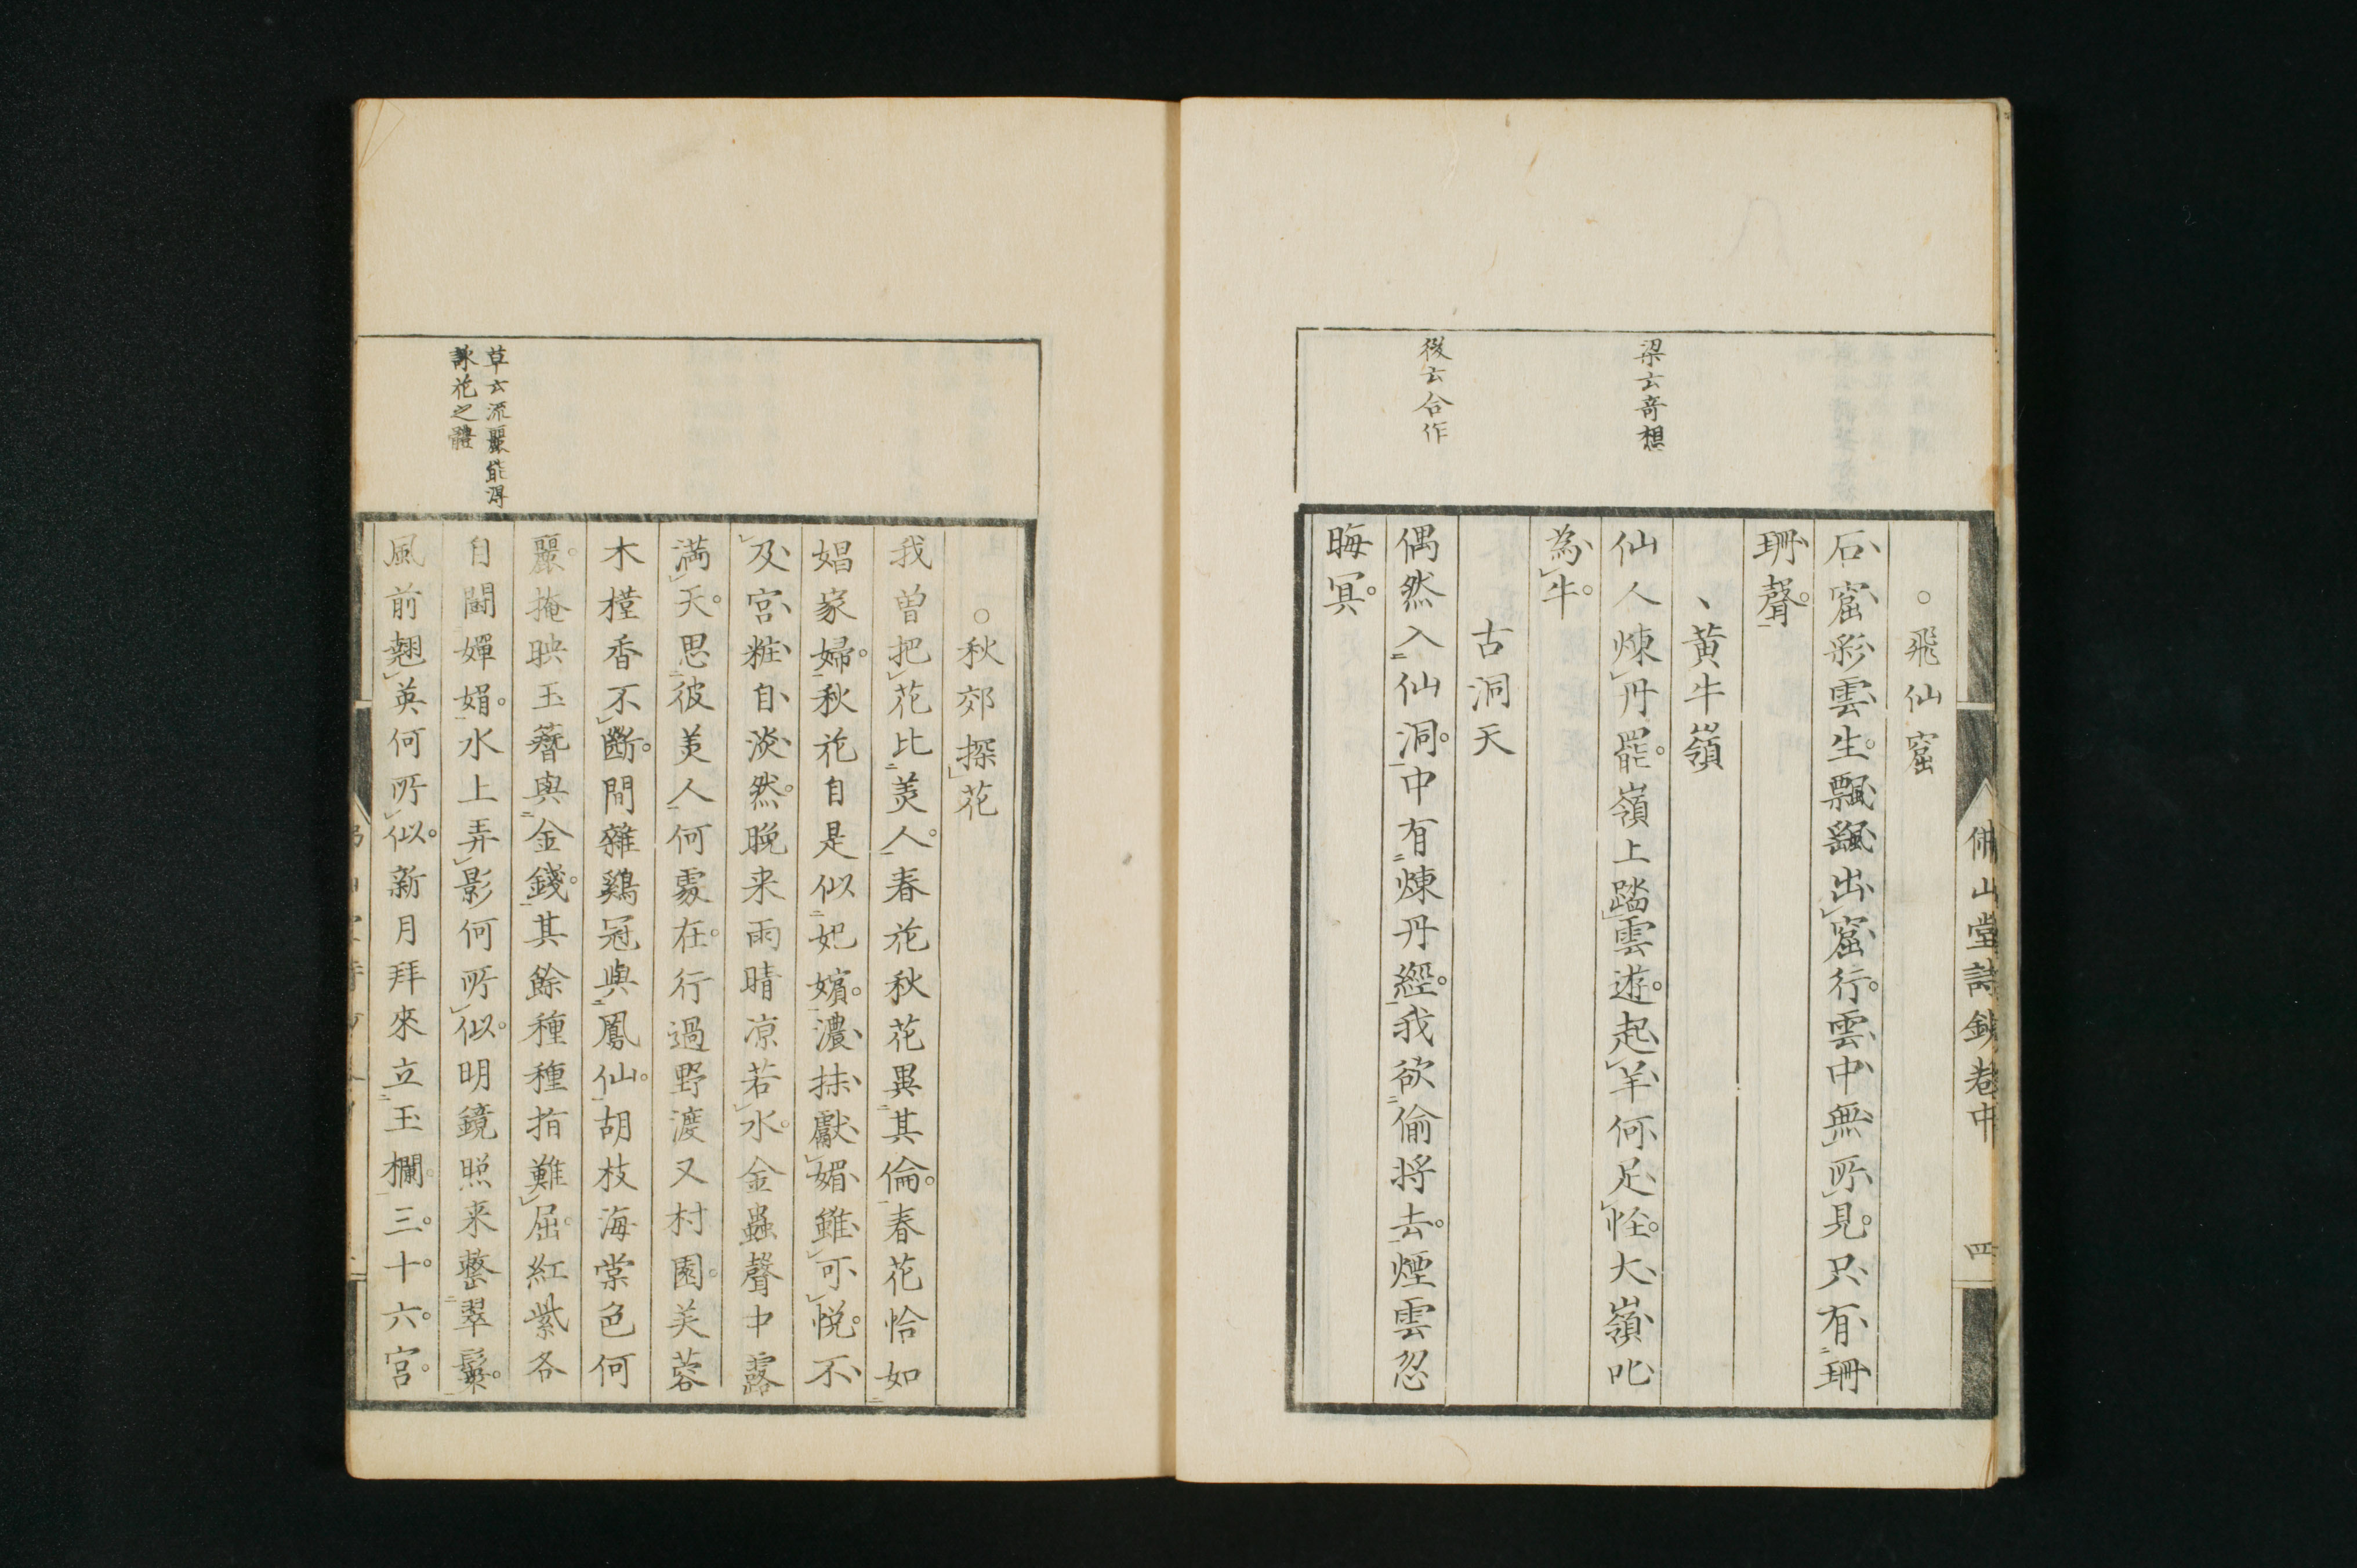 佛山堂詩鈔卷中
四
○飛仙窟
石窟彩雲生。飄飄出窟行。雲中無所見。只有珊
珊聲。
梁云奇想
、黄牛嶺
仙人煉丹罷。嶺上踏雲遊。起羊何足怪。大嶺叱
為牛。
古洞天
後云合作
偶然入仙洞。中有煉丹經。我欲偷将去。煙雲忽
晦冥。
○秋郊探花
我曽把花比美人。春花秋花異其倫。春花恰如
娼家婦。秋花自是似妃嬪。濃抹獻媚雖可悦。不
及宮粧自淡然。晩来雨晴凉若水。金蟲聲中露
満天。思彼美人何處在。行過野渡又村園。芙蓉
木槿香不斷。間雜鷄冠與鳳仙。胡枝海棠色何
麗。掩映玉簪與金錢。其餘種種指難屈。紅紫各
草云流麗能得
詠花之體
自鬪嬋娟。水上弄影何所似。明鏡照来整翠鬟。
風前翹英何所似。新月拜來立玉欄。三。十。六。宮。